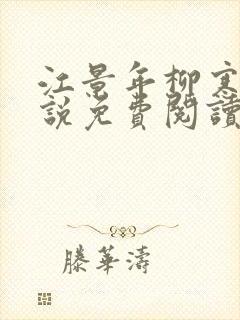 江景年柳寒
說免費閱讀
滕華濤